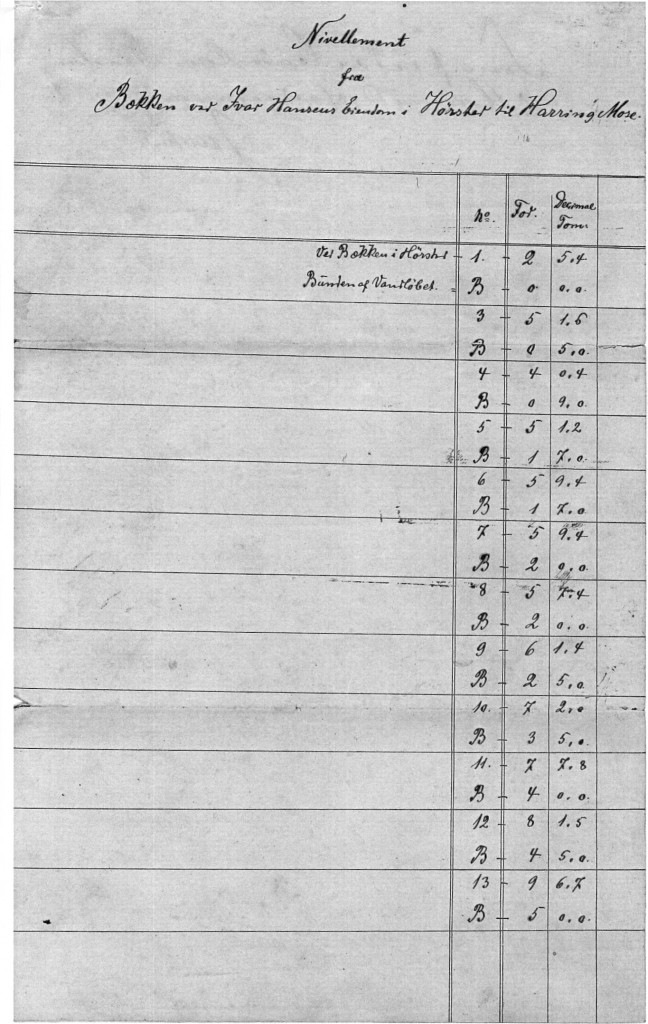 Nivellement
fra
Bækken ved Ivar Hansens Eiendom i Hörsted til Harring Mose.
No. Fod. Decimal Tomr
Ved Bækken i Hörsted 1. 2 5.4
Bunden af Vandløbet. B 0 0.0.
3 5 1.6
B 0 5.0.
4 4 0.4
B 0 9.0.
5 5 1.2
B 1 7.0.
6 5 9.4
B 1 7.0
7 5 9.4
B 2 0.0.
8 5 7.4
B 2 0.0.
9 6 1.4
B 2 5.0.
10. 7 2.0
B 3 5.0.
11. 7 7.8
B 4 0.0.
12 8 1.5
B 4 5.0.
13 9 6.7
B 5 0.0.